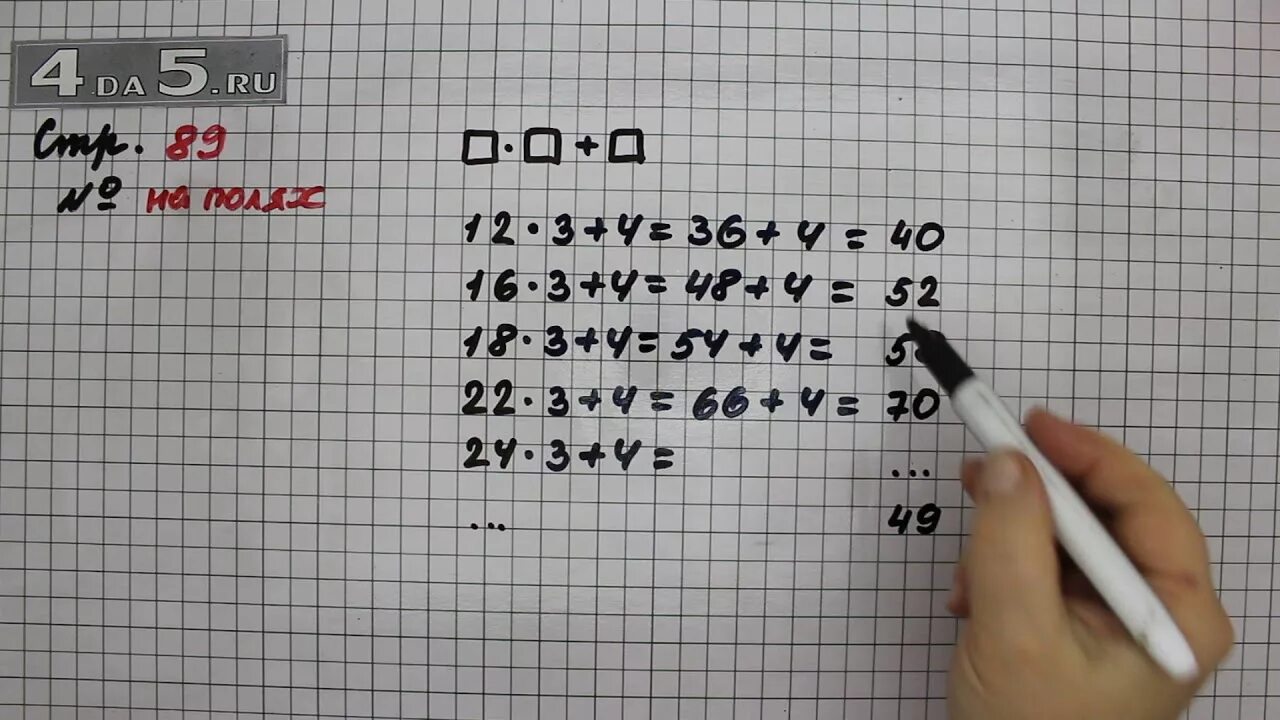 4.DA 5.RU
Стр. 89
№ на полях
□·□+□
12·3+4=36+4=40
16·3+4=48+4=52
18·3+4=54+4=
22·3+4=66+4=70
24·3+4= ...
... 49